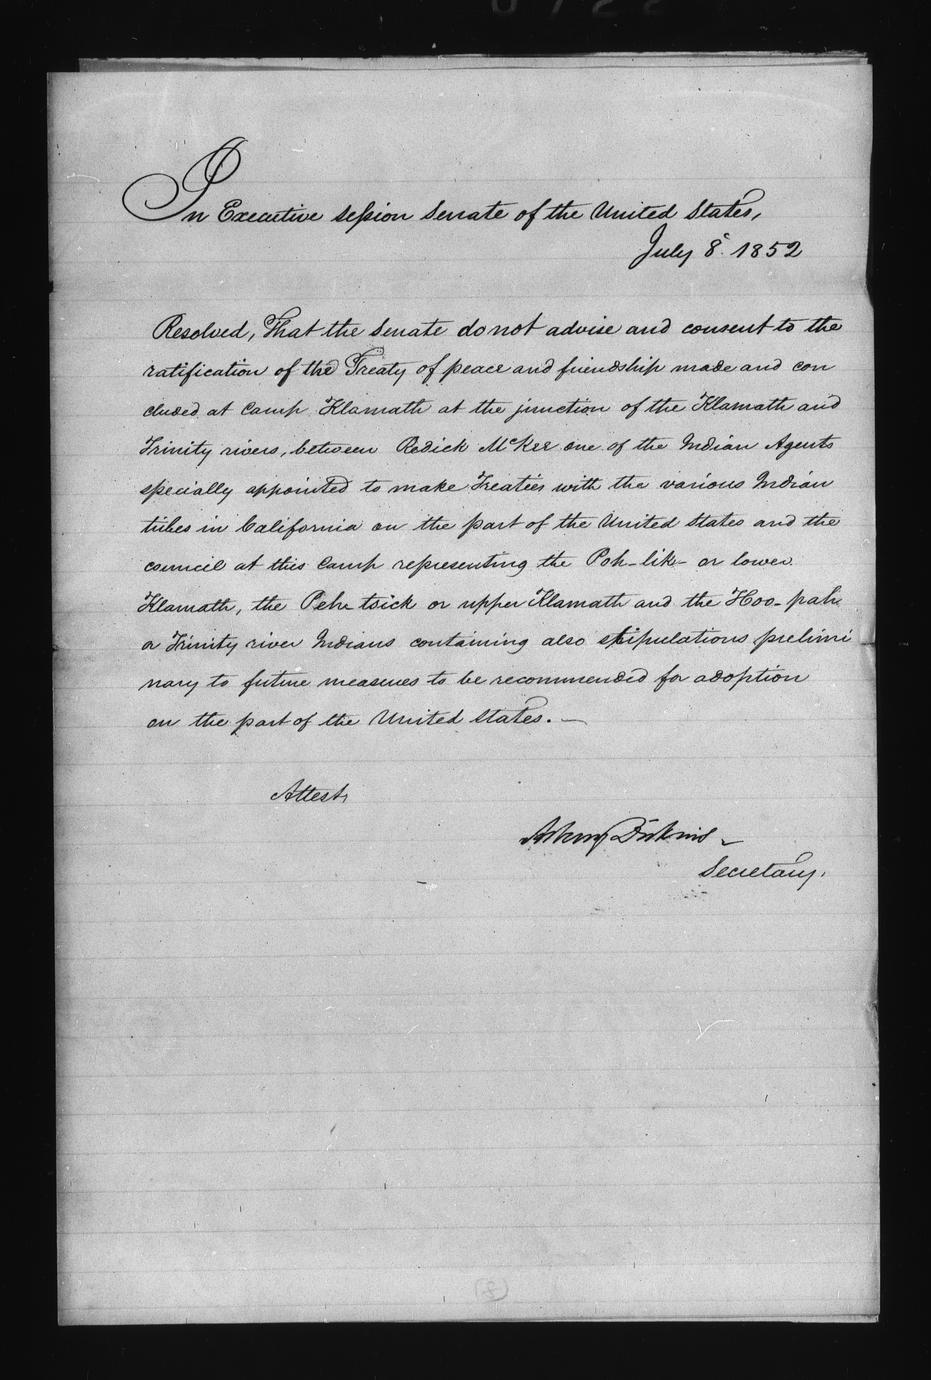 In Executive session Senate of the United States,
July 8. 1852
Resolved, That the Senate do not advise and consent to the
ratification of the Treaty of peace and friendship made and con
cluded at Camp Klamath at the junction of the Klamath and
Trinity rivers, between Redick McKee one of the Indian Agents
specially appointed to make Treaties with the various Indian
tribes in California on the part of the United States and the
council at this Camp representing the Poh-lik- or lower
Klamath, the Peh tsick or upper Klamath and the Hoo-pah
or Trinity river Indians containing also stipulations prelimi
nary to future measures to be recommended for adoption
on the part of the United States. —
Attest,
Asbury Dickins
Secretary.